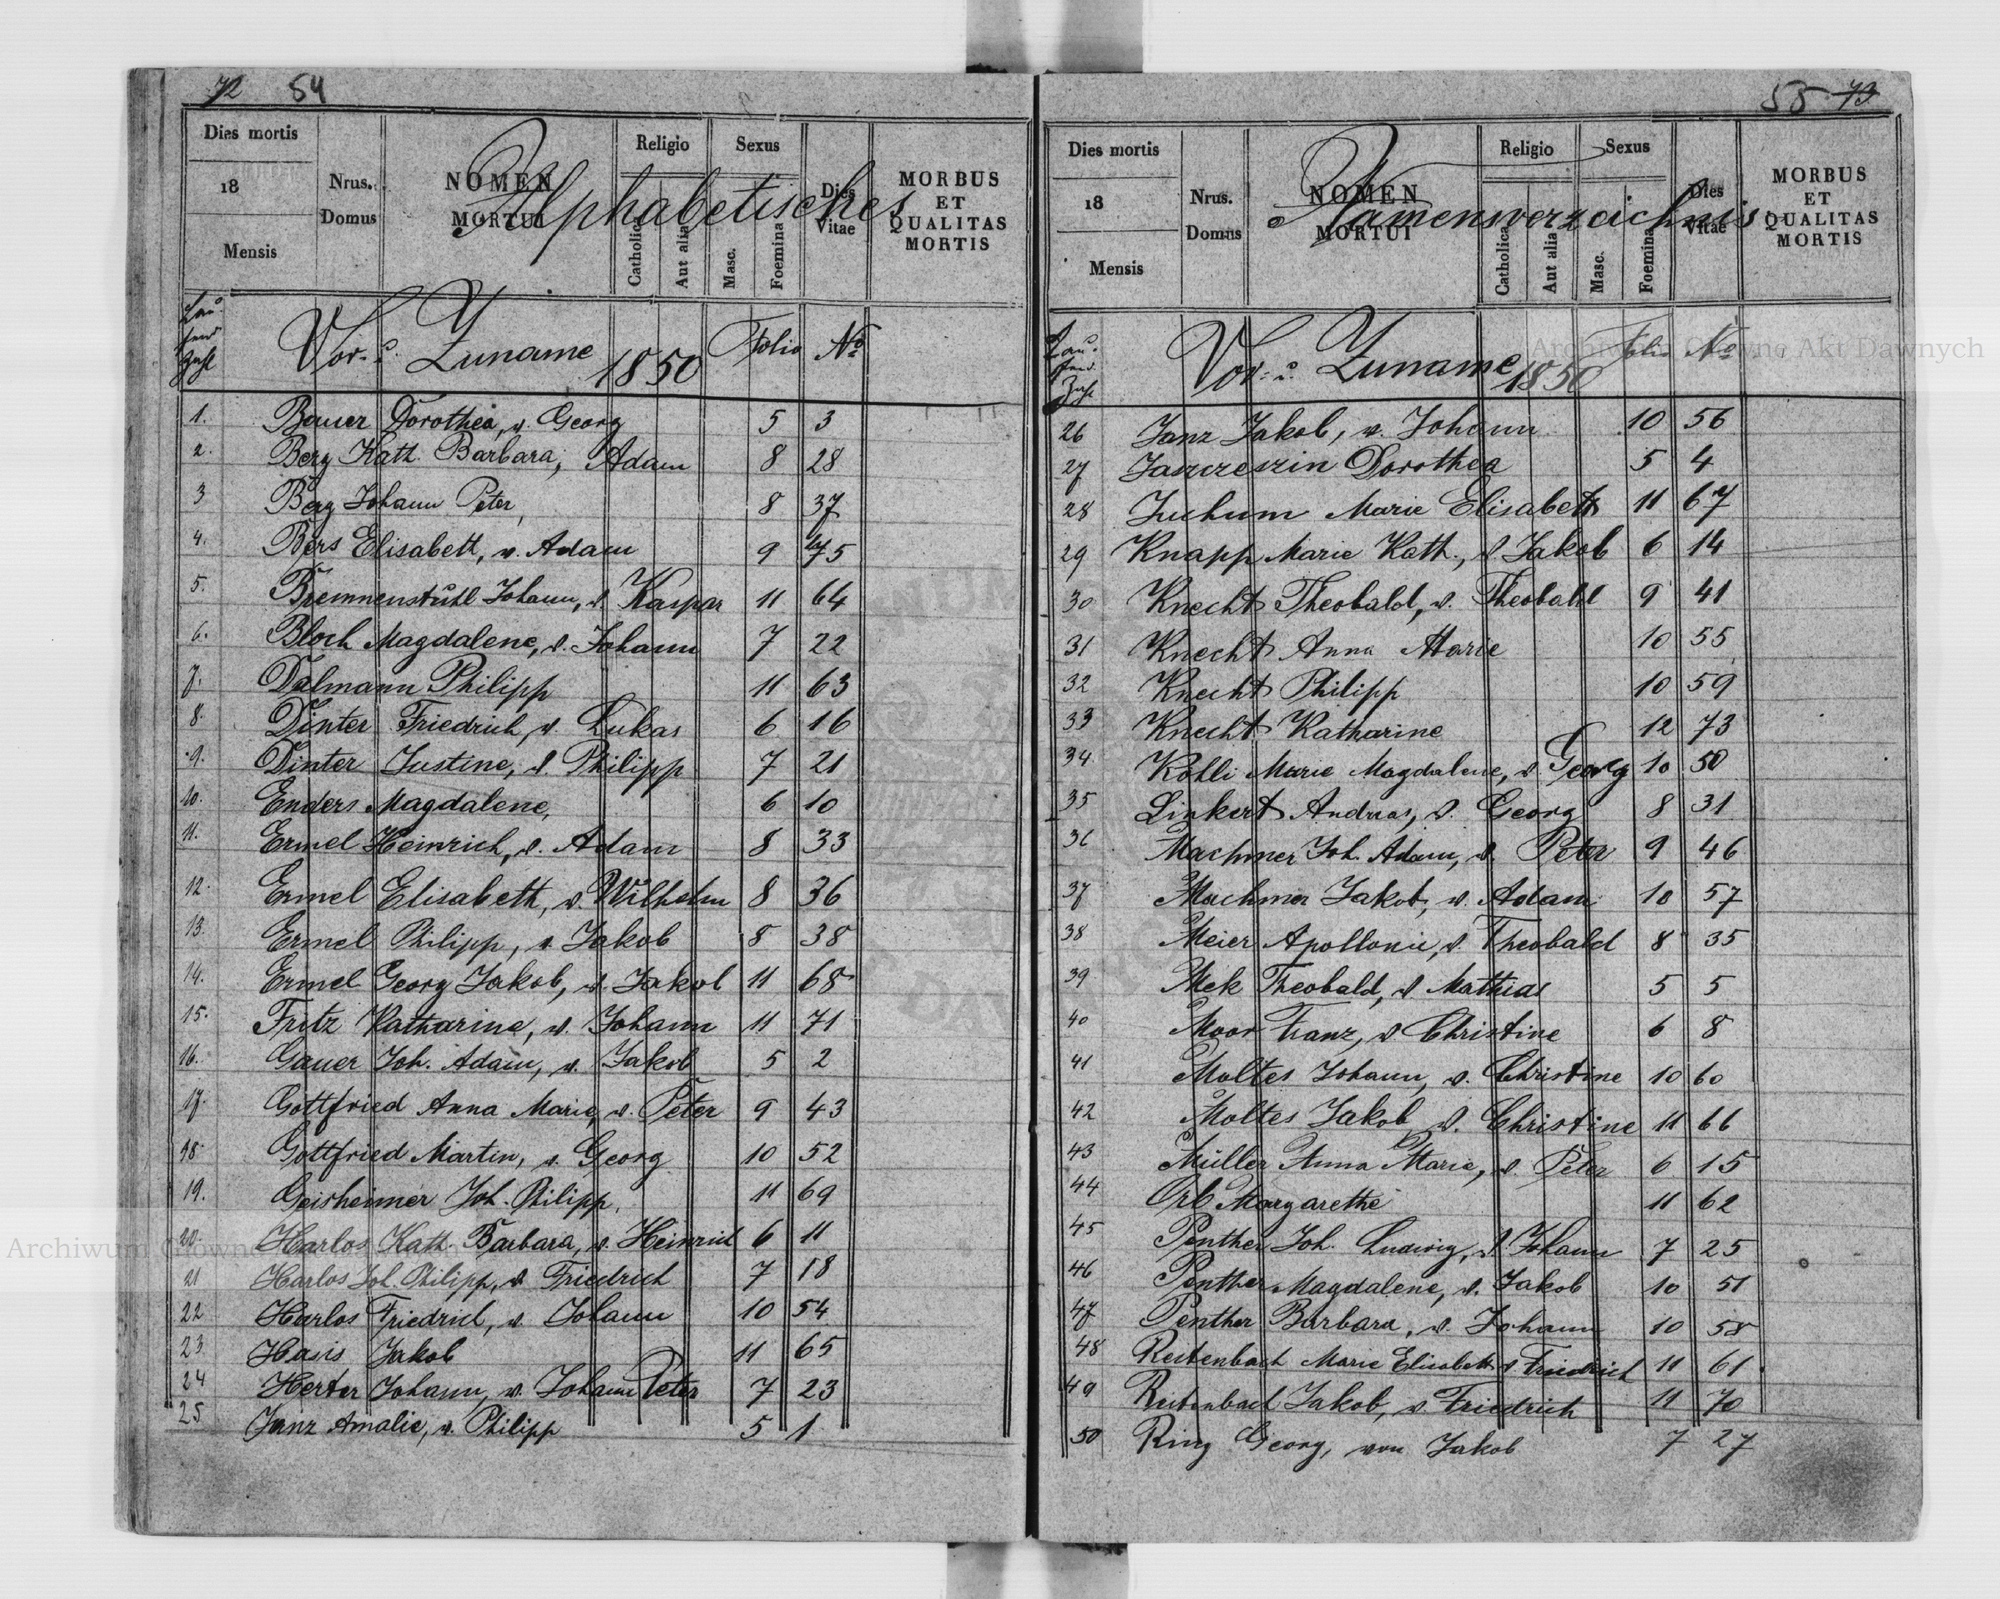 72 54
Dies mortis
18
Mensis
Nrus. Domus
NOMEN MORTUI
Religio
Catholica
Aut alia
Sexus
Masc.
Foemina
Dies Vitae
MORBUS ET QUALITAS MORTIS
Alphabetisches
Laufend Zahl
Vor- u. Zuname 1850 Folio No
1. Bauer Dorothea, v. Georg 5 3
2. Berg Kath. Barbara, Adam 8 28
3 Berg Johann Peter, 8 37
4. Bers Elisabett, v. Adam 9 45
5. Bremnenstuhl Johann, v. Kaspar 11 64
6. Bloch Magdalene, v. Johann 7 22
7. Dalmann Philipp 11 63
8. Dinter Friedrich, v. Lukas 6 16
9. Dinter Justine, v. Philipp 7 21
10. Enders Magdalene, 6 10
11. Ermel Heinrich, v. Adam 8 33
12. Ermel Elisabeth, v. Wilhelm 8 36
13. Ermel Philipp, v. Jakob 8 38
14. Ermel Georg Jakob, v. Jakob 11 68
15. Fritz Katharine, v. Johann 11 71
16. Gauer Joh. Adam, v. Jakob 5 2
17. Gottfried Anna Marie, v. Peter 9 43
18. Gottfried Martin, v. Georg 10 52
19. Geisheimer Joh. Philipp, 11 69
20. Harlos Kath. Barbara, v. Heinrich 6 11
21 Harlos Joh. Philipp, v. Friedrich 7 18
22 Harlos Friedrich, v. Johann 10 54
23 Hasis Jakob 11 65
24 Herter Johann, v. Johann Peter 7 23
25 Janz Amalie, v. Philipp 5 1
55 73
Dies mortis
18
Mensis
Nrus. Domus
NOMEN MORTUI
Religio
Catholica
Aut alia
Sexus
Masc.
Foemina
Dies Vitae
MORBUS ET QUALITAS MORTIS
Namensverzeichnis
Laufend. Zahl
Vor- u. Zuname 1850 Folio No
26 Janz Jakob, v. Johann 10 56
27 Dorothea 5 4
28 Juchum Marie Elisabett 11 67
29 Knapp Marie Kath., v. Jakob 6 14
30 Knecht Theobald, v. Theobald 9 41
31 Knecht Anna Marie 10 55
32 Knecht Philipp 10 59
33 Knecht Katharine 12 73
34 Kolli Marie Magdalene, v. Georg 10 50
35 Linkert Andreas, v. Georg 8 31
36 Machmer Joh. Adam, v. Peter 9 46
37 Machmer Jakob, v. Adam 10 57
38 Meier Apollonie, v. Theobald 8 35
39 Mek Theobald, v. Mathias 5 5
40 Moor Franz, v. Christine 6 8
41 Moltes Johann, v. Christine 10 60
42 Moltes Jakob, v. Christine 11 66
43 Müller Anna Marie, v. Peter 6 15
44 Orb Margarethe 11 62
45 Penther Joh. Ludwig, v. Johann 7 25
46 Penther Magdalene, v. Jakob 10 51
47 Penther Barbara, v. Johann 10 58
48 Reitenbach Marie Elisabett v. Friedrich 11 61
49 Reitenbach Jakob, v. Friedrich 11 70
50 Ring Georg, von Jakob 7 27
Archiwum Główne Akt Dawnych
Archiwum Główne